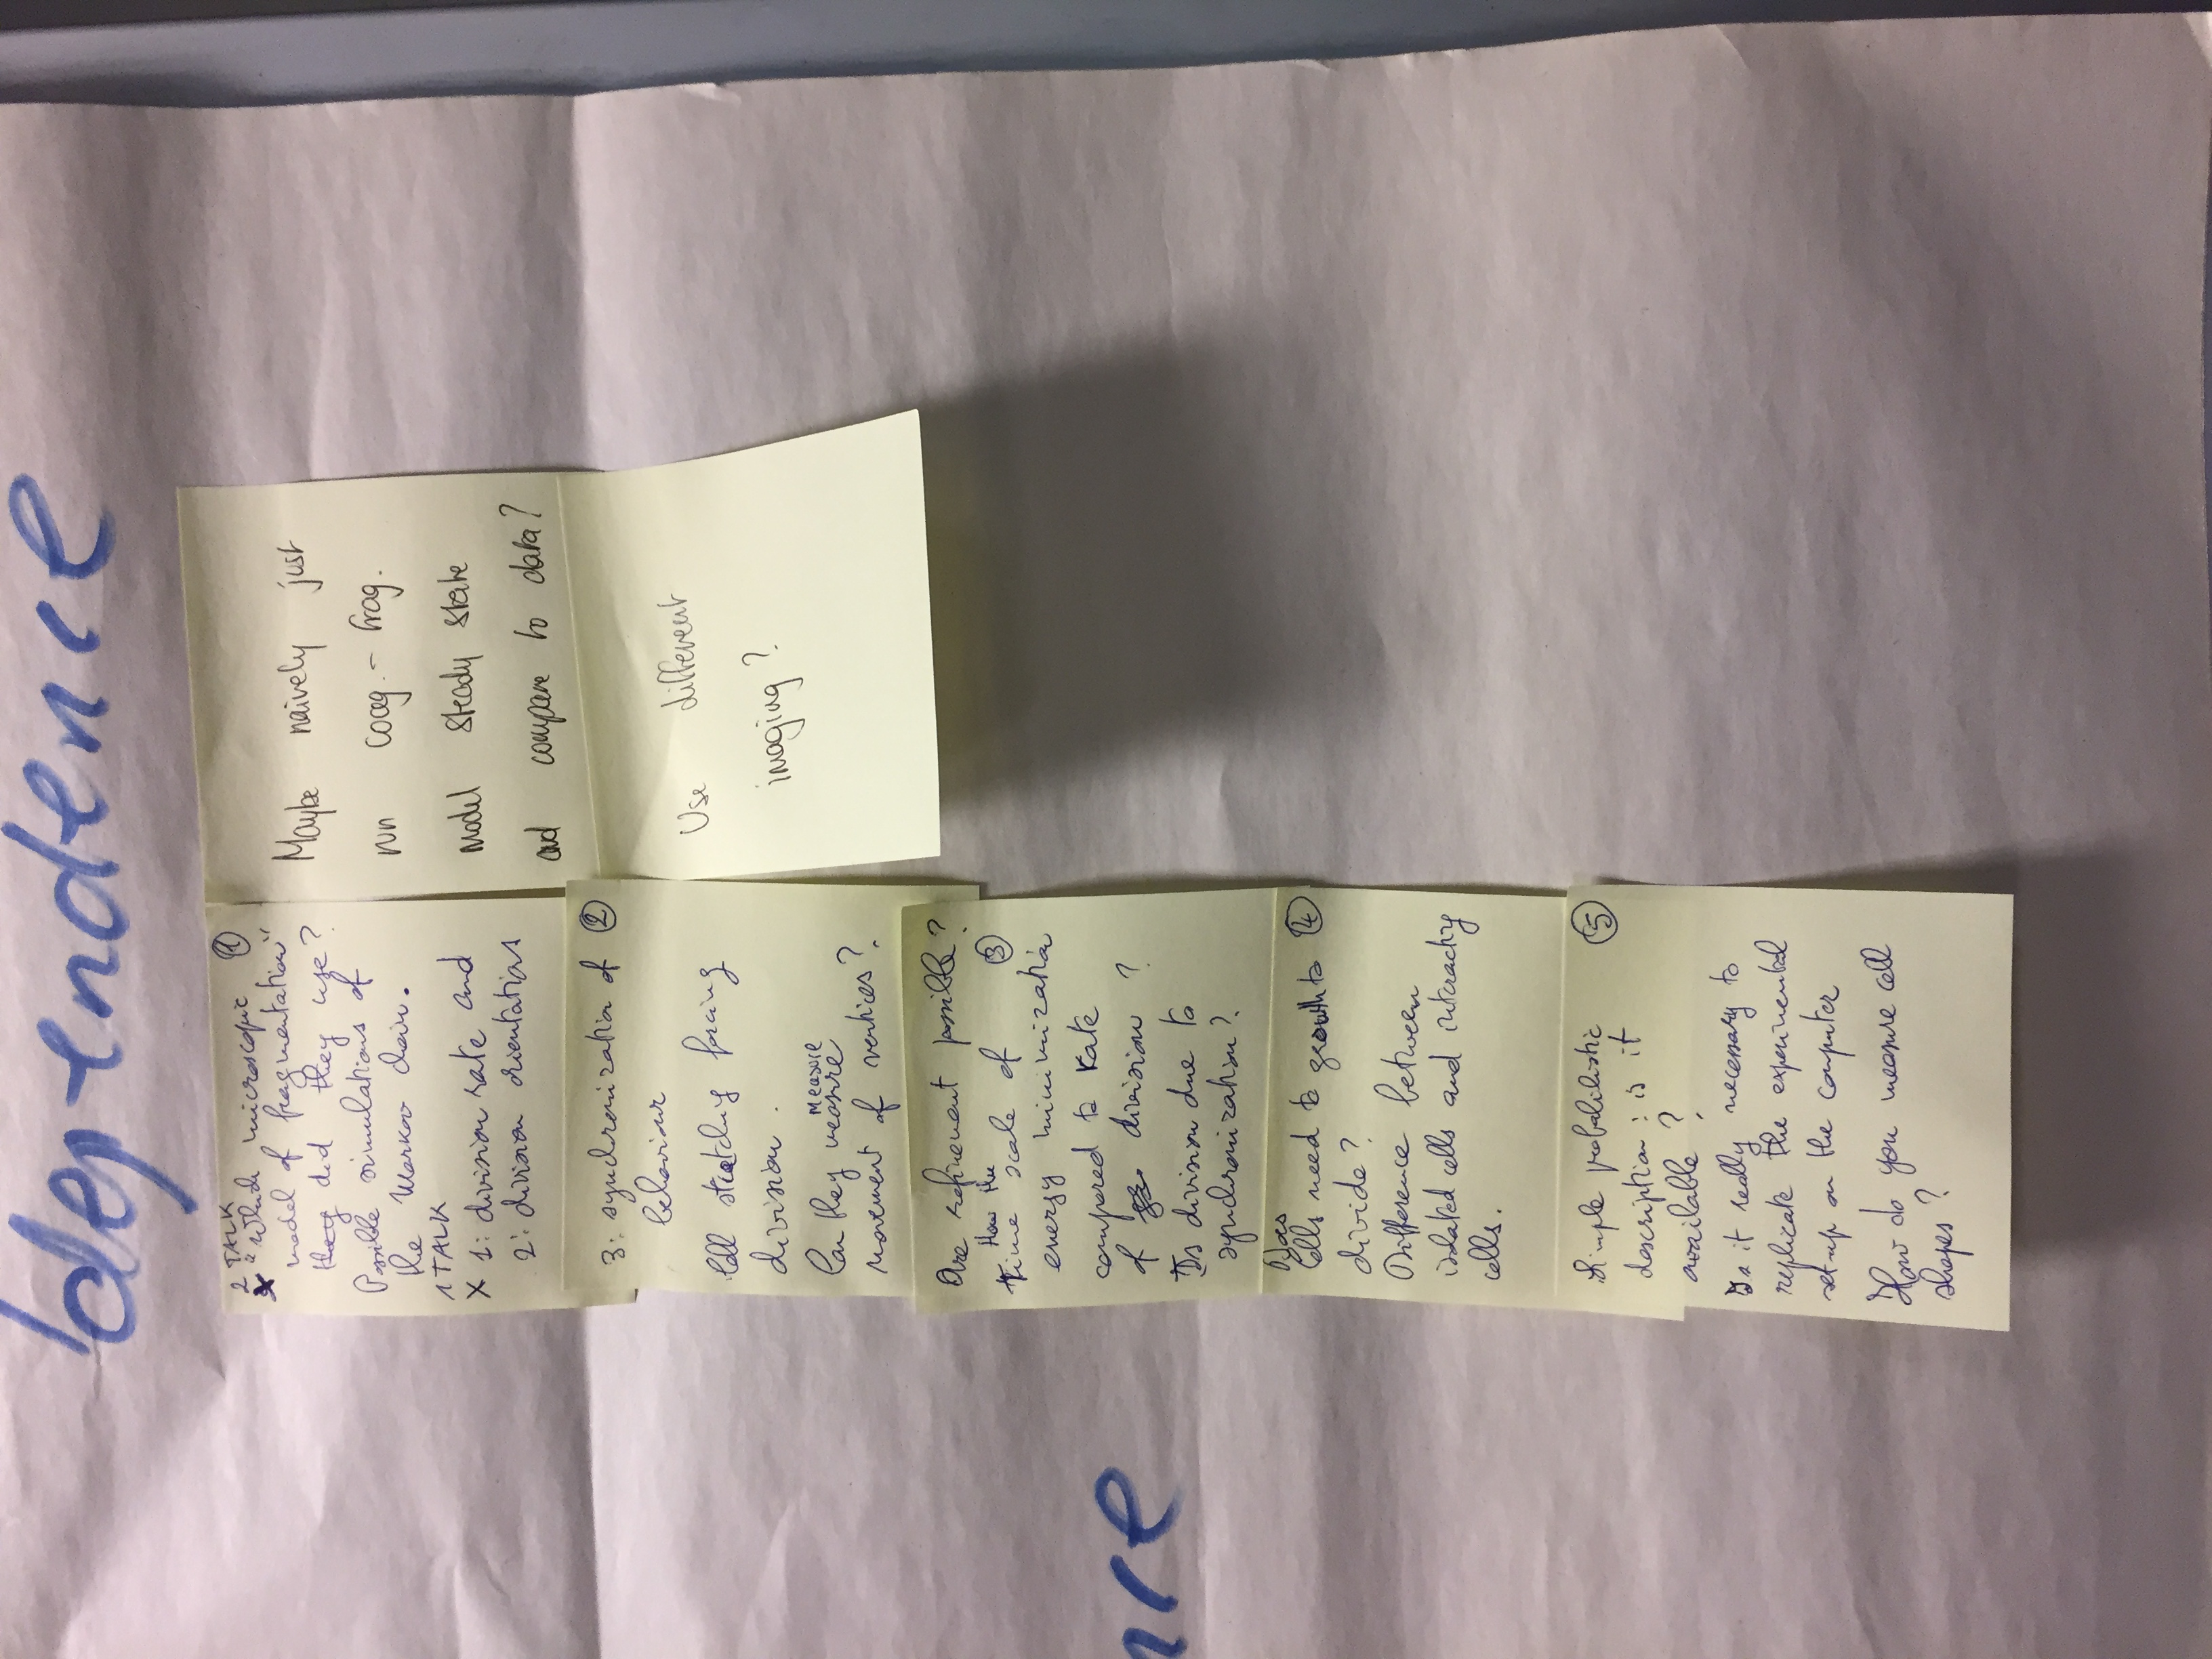 'dependence
2 TALK
"Which microscopic ①
model of fragmentation"
did they use?
Possible simulations of
the Markov chain.
1 TALK
X 1: division rate and
2: division orientations
3: synchronization of ②
behaviour
Cell stretching forcing
division.
Can they measure measure
movement of vertices?
Are refinement possible?
How the ③
time scale of
energy minimization
compared to rate
of division?
Is division due to
synchronization?
Does
cells need to growth to ④
divide?
Difference between
isolated cells and interacting
cells.
Simple probabilistic ⑤
description: is it
available?
Is it really necessary to
replicate the experimental
set-up on the computer
How do you measure cell
shapes?
Maybe naively just
run coag.-frag.
model steady state
and compare to data?
Use different
imaging?
nce